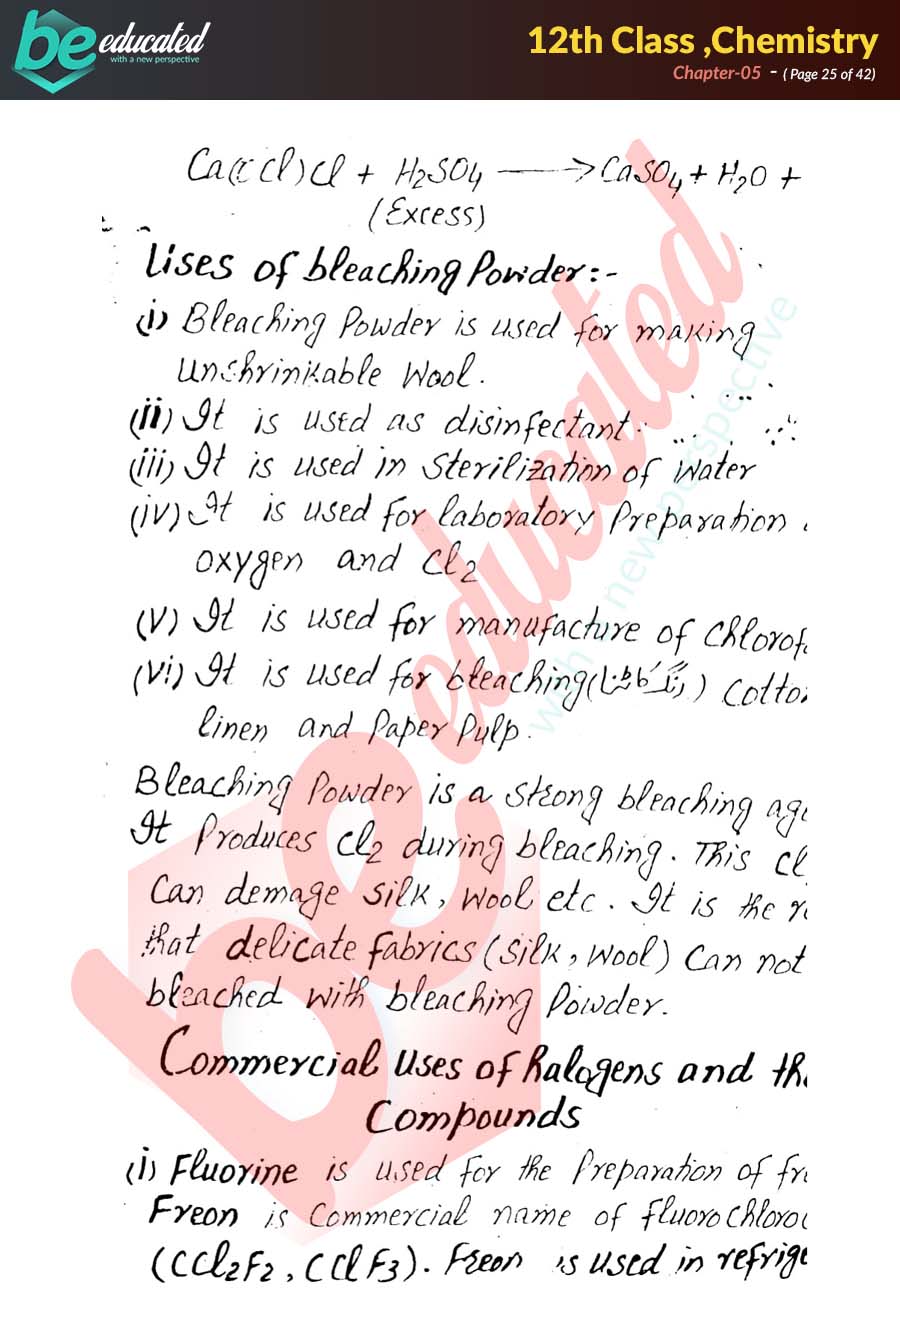 be educated
with a new perspective
12th Class ,Chemistry
Chapter-05 - ( Page 25 of 42)
Ca(OCl)Cl + H2SO4 ⟶ CaSO4 + H2O +
(Excess)
Uses of bleaching Powder:-
(i) Bleaching Powder is used for making
Unshrinkable Wool.
(ii) It is used as disinfectant.
(iii) It is used in Sterilization of Water
(iv) It is used for laboratory Preparation
oxygen and Cl2
(V) It is used for manufacture of Chlorof
(Vi) It is used for bleaching (رنگ کاٹنا) Cotto
linen and Paper Pulp.
Bleaching Powder is a strong bleaching age
It Produces Cl2 during bleaching. This Cl
Can demage silk, wool etc. It is the re
that delicate fabrics (silk, wool) Can not
bleached with bleaching Powder.
Commercial Uses of halogens and the
Compounds
(i) Fluorine is used for the Preparation of fre
Freon is Commercial name of fluorochloroc
(CCl2F2, CClF3). Freon is used in refrige
be educated
with a new perspective